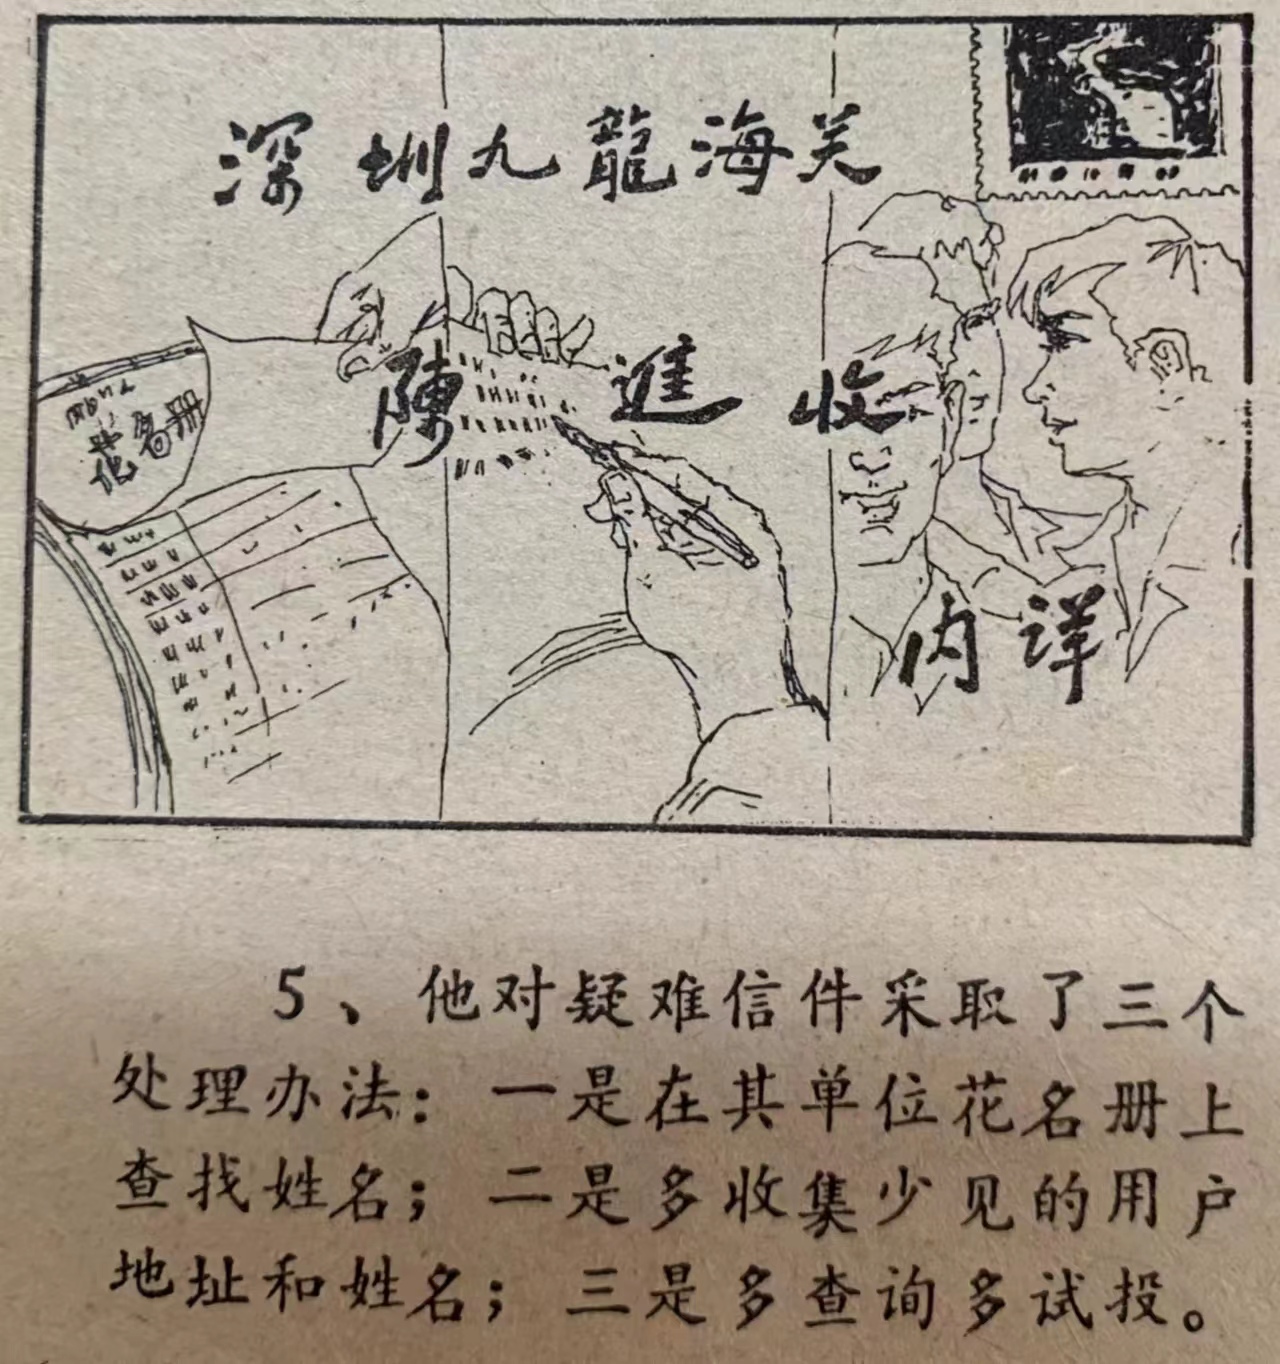 深圳九龍海关
陳進收
内详
花名册
5、他对疑难信件采取了三个
处理办法：一是在其单位花名册上
查找姓名；二是多收集少见的用户
地址和姓名；三是多查询多试投。